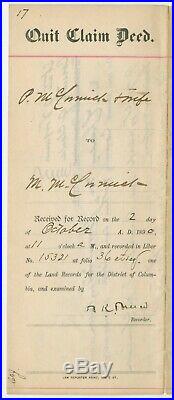 17
Quit Claim Deed.
P. McCormick & wife
TO
M. McCormick
Received for Record on the 2 day
of October A. D. 1890,
at 11 o'clock a M., and recorded in Liber
No. 15321 at folio 36 et seq, one
of the Land Records for the District of Colum-
bia, and examined by
Recorder.